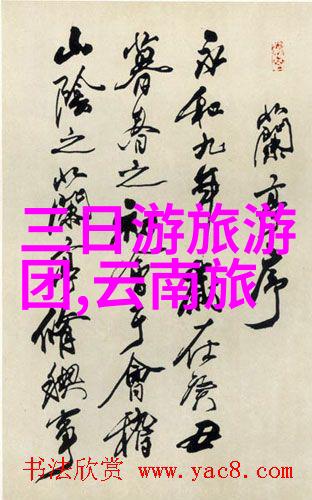 蘭亭序
永和九年歲在癸丑
暮春之初會于會稽
山陰之蘭亭脩禊事
三日游旅游
团,云南旅
书法欣赏 www.yac8.com